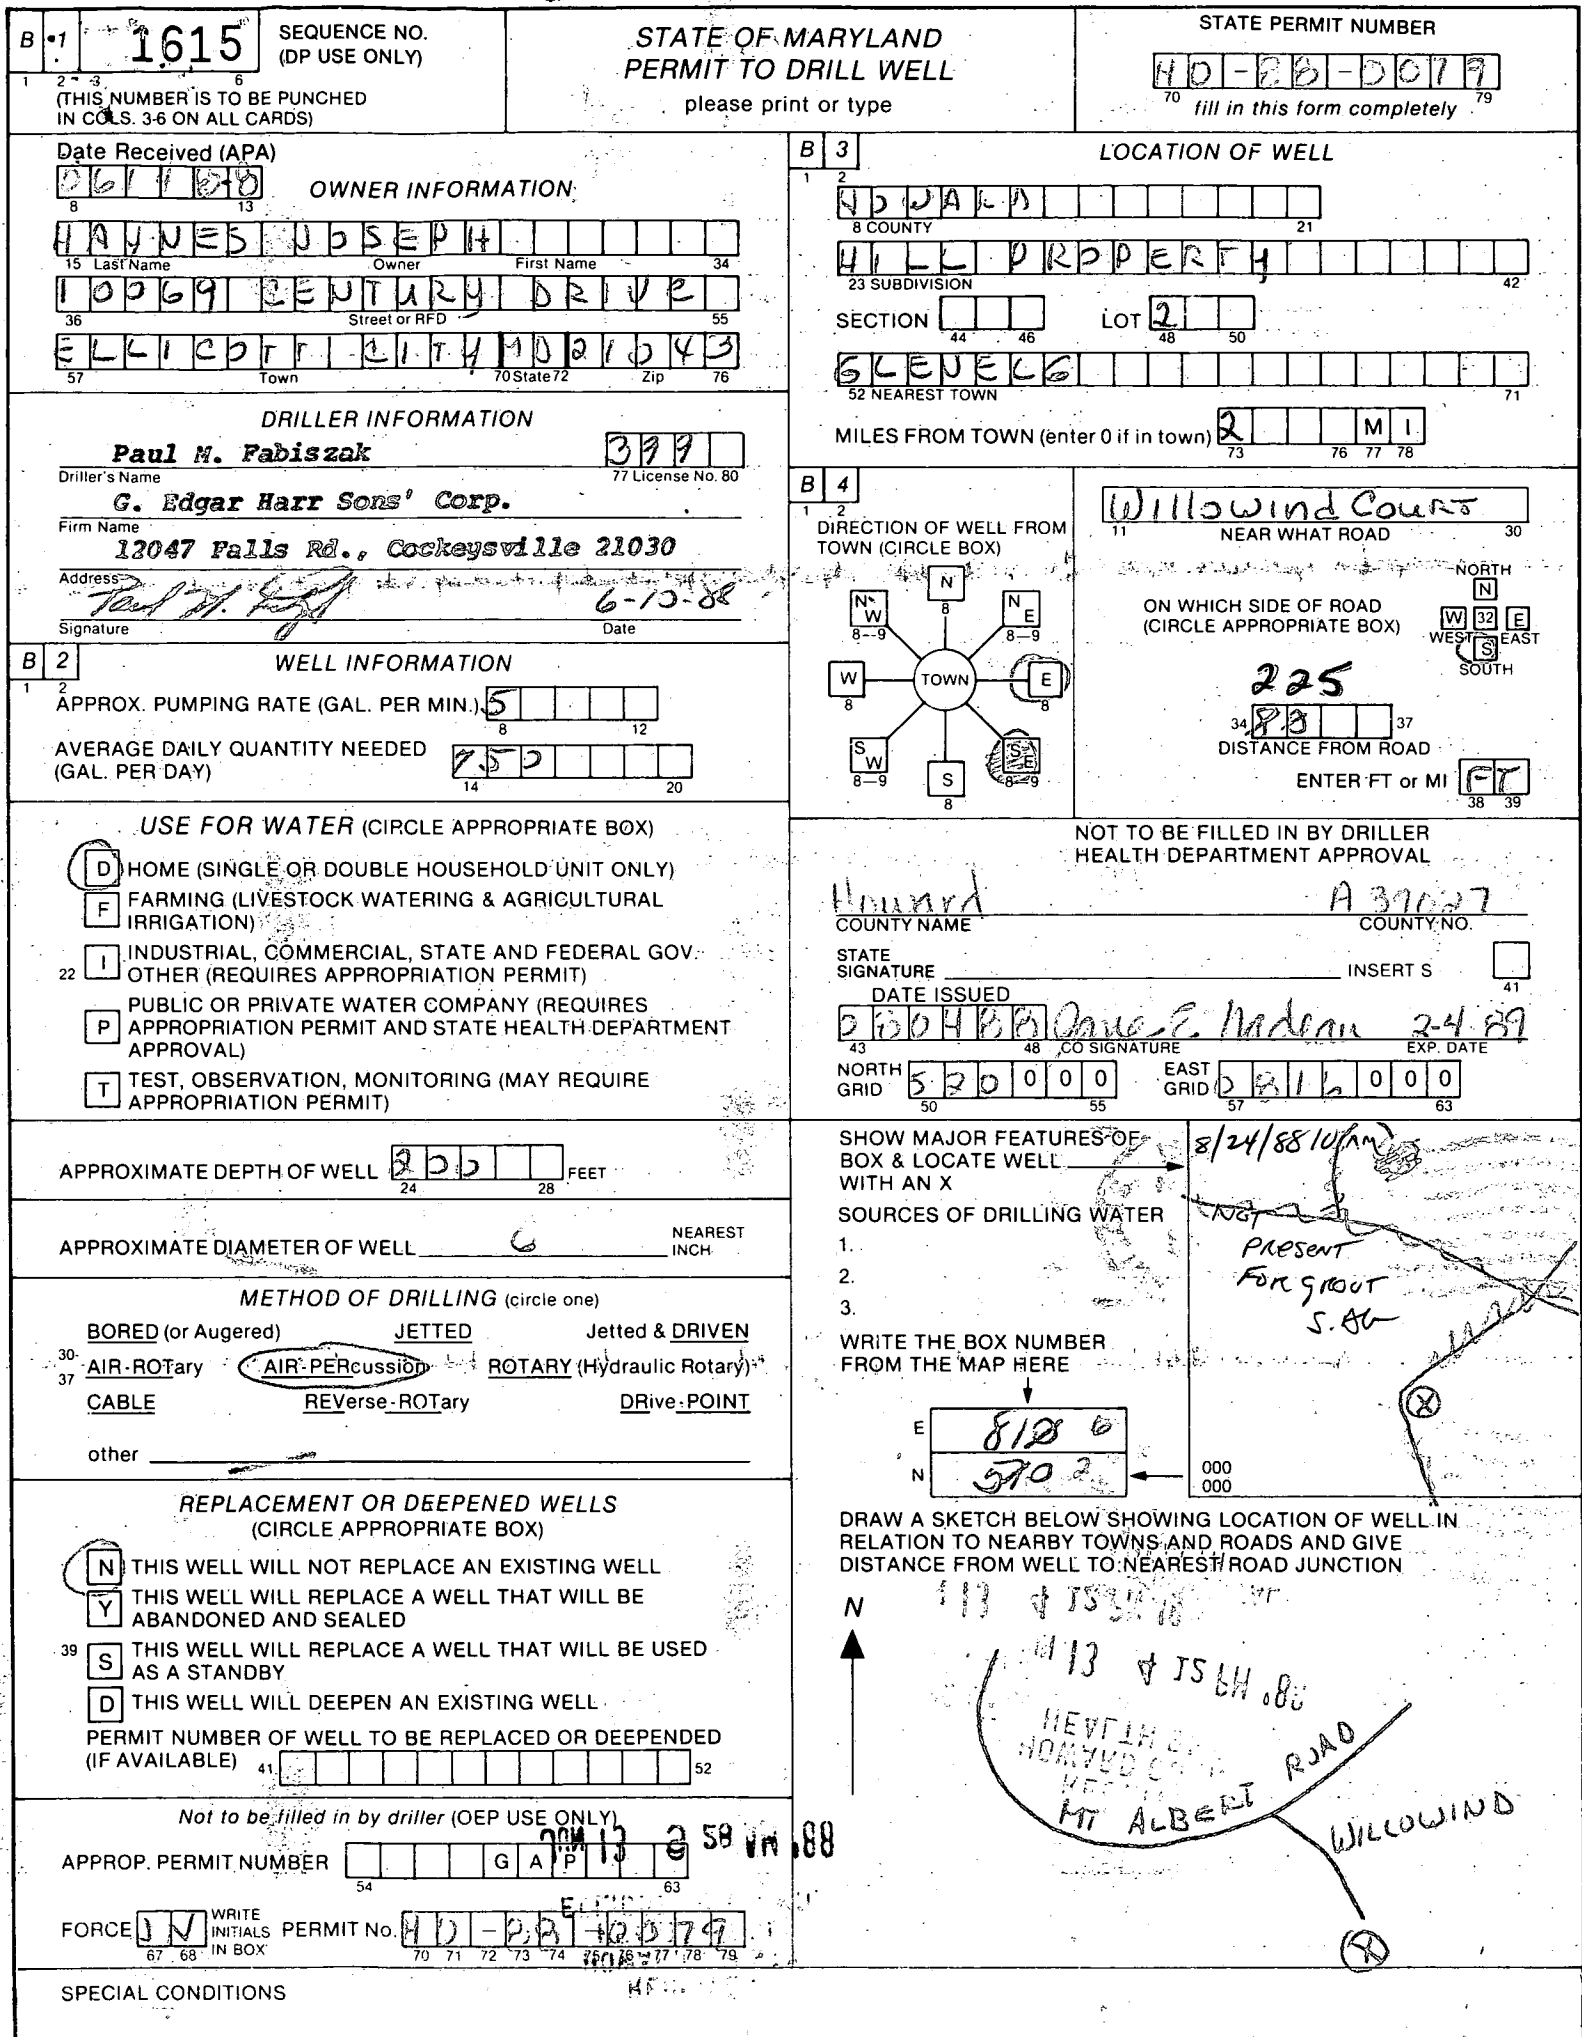 B 1 1615 SEQUENCE NO. (DP USE ONLY)
1 2 3 6
(THIS NUMBER IS TO BE PUNCHED
IN COLS. 3-6 ON ALL CARDS)
STATE OF MARYLAND
PERMIT TO DRILL WELL
please print or type
STATE PERMIT NUMBER
HO-88-0079
70 79
fill in this form completely
Date Received (APA)
061188
8 13
OWNER INFORMATION
HAYNES JOSEPH
15 Last Name Owner First Name 34
10069 CENTURY DRIVE
36 Street or RFD 55
ELLICOTT CITY MD 21043
57 Town 70 State 72 Zip 76
DRILLER INFORMATION
Paul M. Fabiszak 399
Driller's Name 77 License No. 80
G. Edgar Harr Sons' Corp.
Firm Name
12047 Falls Rd., Cockeysville 21030
Address
6-10-88
Signature Date
B 2 WELL INFORMATION
1 2
APPROX. PUMPING RATE (GAL. PER MIN.) 5
8 12
AVERAGE DAILY QUANTITY NEEDED
(GAL. PER DAY) 750
14 20
USE FOR WATER (CIRCLE APPROPRIATE BOX)
D HOME (SINGLE OR DOUBLE HOUSEHOLD UNIT ONLY)
F FARMING (LIVESTOCK WATERING & AGRICULTURAL
IRRIGATION)
22 I INDUSTRIAL, COMMERCIAL, STATE AND FEDERAL GOV.
OTHER (REQUIRES APPROPRIATION PERMIT)
P PUBLIC OR PRIVATE WATER COMPANY (REQUIRES
APPROPRIATION PERMIT AND STATE HEALTH DEPARTMENT
APPROVAL)
T TEST, OBSERVATION, MONITORING (MAY REQUIRE
APPROPRIATION PERMIT)
APPROXIMATE DEPTH OF WELL 200 FEET
24 28
APPROXIMATE DIAMETER OF WELL 6 NEAREST INCH
METHOD OF DRILLING (circle one)
BORED (or Augered) JETTED Jetted & DRIVEN
30-37 AIR-ROTary AIR-PERcussion ROTARY (Hydraulic Rotary)
CABLE REVerse-ROTary DRive-POINT
other
REPLACEMENT OR DEEPENED WELLS
(CIRCLE APPROPRIATE BOX)
N THIS WELL WILL NOT REPLACE AN EXISTING WELL
Y THIS WELL WILL REPLACE A WELL THAT WILL BE
ABANDONED AND SEALED
39 S THIS WELL WILL REPLACE A WELL THAT WILL BE USED
AS A STANDBY
D THIS WELL WILL DEEPEN AN EXISTING WELL
PERMIT NUMBER OF WELL TO BE REPLACED OR DEEPENDED
(IF AVAILABLE) 41 52
Not to be filled in by driller (OEP USE ONLY)
APPROP. PERMIT NUMBER G A P
54 63
FORCE WRITE INITIALS IN BOX PERMIT No. HO-88-0079
67 68 70 71 72 73 74 75 76 77 78 79
SPECIAL CONDITIONS
B 3 LOCATION OF WELL
1 2
HOWARD
8 COUNTY 21
HILL PROPERTY
23 SUBDIVISION 42
SECTION LOT 2
44 46 48 50
GLENELG
52 NEAREST TOWN 71
MILES FROM TOWN (enter 0 if in town) 2 M I
73 76 77 78
B 4
1 2
DIRECTION OF WELL FROM
TOWN (CIRCLE BOX)
N 8
NW 8-9
NE 8-9
W 8
TOWN
E 8
SW 8-9
S 8
SE 8-9
Willowind Court
11 NEAR WHAT ROAD 30
ON WHICH SIDE OF ROAD
(CIRCLE APPROPRIATE BOX)
NORTH
N
W 32 E
WEST EAST
S
SOUTH
225
34 37
DISTANCE FROM ROAD
ENTER FT or MI FT
38 39
NOT TO BE FILLED IN BY DRILLER
HEALTH DEPARTMENT APPROVAL
Howard A 39027
COUNTY NAME COUNTY NO.
STATE
SIGNATURE INSERT S
41
DATE ISSUED
080488 2-4-89
43 48 CO SIGNATURE EXP. DATE
NORTH GRID 520 000 EAST GRID 0816 000
50 55 57 63
SHOW MAJOR FEATURES OF
BOX & LOCATE WELL
WITH AN X
SOURCES OF DRILLING WATER
1.
2.
3.
WRITE THE BOX NUMBER
FROM THE MAP HERE
E 810 6
N 510 2
000
000
8/24/88 10 AM
NOT
PRESENT
FOR GROUT
DRAW A SKETCH BELOW SHOWING LOCATION OF WELL IN
RELATION TO NEARBY TOWNS AND ROADS AND GIVE
DISTANCE FROM WELL TO NEAREST ROAD JUNCTION
N
MT ALBERT ROAD
WILLOWIND
X